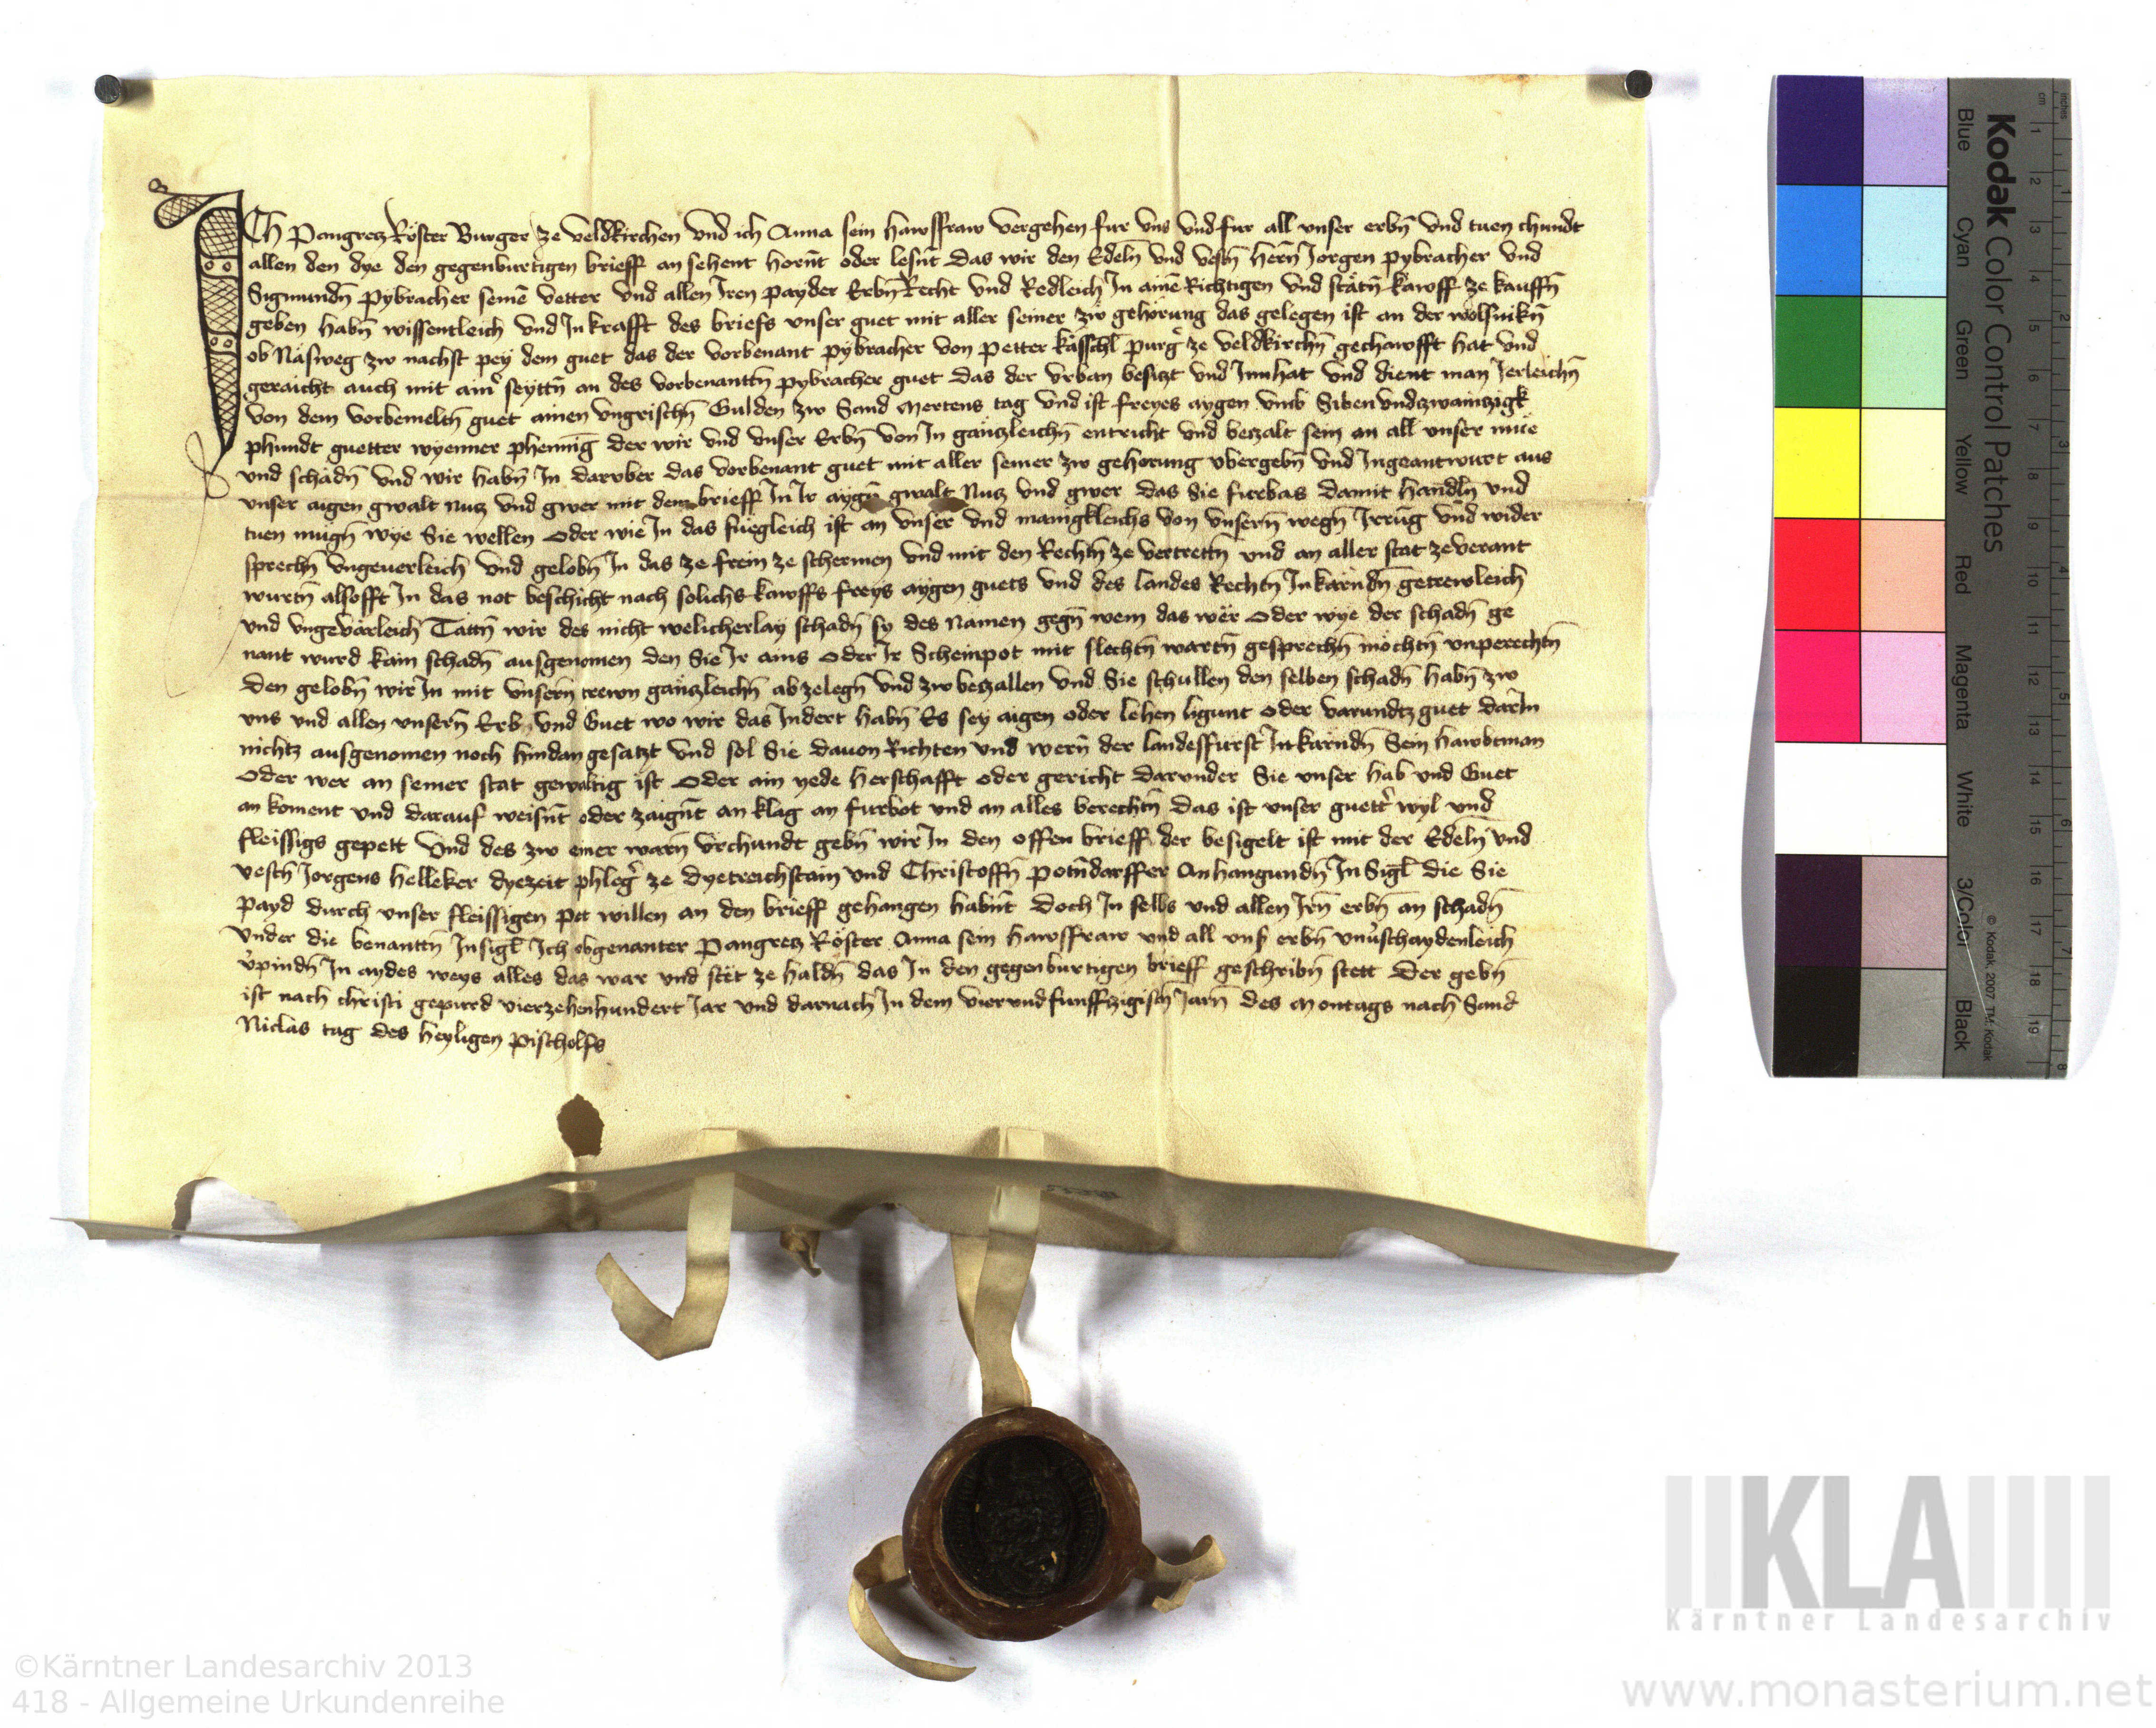 ICh Pangretz Röster Burger ze veldkirchen vnd ich Anna sein hawsfraw vergehen fur vns vnd fur all vnser erbn̄ vnd tuen chundt
allen den dye den gegenburtigen brieff an sehent hornt oder lesnt das wir den Edeln̄ vnd vestn̄ hern̄ Jorgen pybracher vnd
Sigmundn̄ pybracher seinē vetter vnd allen Iren payder Erbn̄ Recht vnd Redleich In ainē Richtigen vnd stätn̄ kawff ze kauffn̄
geben habn̄ wissentleich vnd In krafft des briefs vnser guet mit aller seiner zw gehörung das gelegen ist an der wölsnikn̄
ob Näsweg zw nachst pey dem guet das der vorbenant pybracher von petter kässchl purg̉ ze veldkirchn̄ gechawfft hat vnd
geraicht auch mit aim̉ seyttn̄ an des vorbenanttn̄ pybracher guet das der vrban besitzt vnd Innhat vnd dient man Jerleichn̄
von dem vorbemeltn̄ guet ainen vngrischn̄ Gulden zw Sand Mertens tag vnd ist freyes aygen vmb Siben vndzwaintzigk
phundt guetter wyenner phennig der wir vnd vnser Erbn̄ von In gänzleichn̄ entricht vnd beczalt sein an all vnser müe
vnd schadn̄ vnd wir habn̄ In darvber das vorbenant guet mit aller seiner zw gehorung vbergebn̄ vnd Ingeantwurt aus
vnser aigen gwalt nutz vnd gwer mit dem brieff In Ir aygn̄ gwalt Nutz vnd gwer das Sie furbas damit handln̄ vnd
tuen mügn̄ wye Sie wellen oder wie In das fuegleich ist an vnser vnd manigkleichs von vnsern̄ wegn̄ Irrūg vnd wider
sprechn̄ vngeuerleich vnd gelobn̄ In das ze frein ze schermen vnd mit den Rechtn̄ ze vertrettn̄ vnd an aller stat ze verant
wurtn̄ alsofft In das not beschicht nach solichs kawffs freys aygen guets vnd des landes Rechtn̄ In kärndn̄ getrewleich
vnd vngevärleich Tättn̄ wir des nicht welicherlay schadn̄ sy des Namen gegn̄ wem das wër oder wye der schadn̄ ge
nant wurd kain schadn̄ ausgenomen den Sie Ir ains oder Ir Scheinpot mit slechtn̄ wartn̄ gesprechn̄ möchtn̄ vnperechtn̄
den gelobn̄ wir In mit vnsern̄ trewn gänzleichn̄ abzelegn̄ vnd zw beczallen vnd Sie schullen den selben schadn̄ habn̄ zw
vns vnd allen vnsern̄ Erbn̄ vnd Guet wo wir das Indert habn̄ Es sey aigen oder lehen ligunt oder varundtz guet dar In
nichtz ausgenomen noch hindan gesatzt vnd sol Sie dauon Richten vnd wern̄ der landesfurst In kärndn̄ Sein hawbtman
oder wer an seiner stat gewaltig ist oder ain yede herschafft oder gericht darvnder Sie vnser hab vnd Guet
an koment vnd darauf weisnt oder zaignt an klag an furbot vnd an alles berechtn̄ das ist vnser guett̉ wyl vnd
fleissigs gepett vnd des zw einer warn̄ vrchundt gebn̄ wir In den offen brieff der besigelt ist mit der Edeln̄ vnd
vestn̄ Jorgens helleker dyezeit phleg̉ ze dyetreichstain vnd Christoffn̄ potndarffer Anhangundn̄ In Sigl̄ die Sie
payd durch vnser fleissigen pet willen an den brieff gehangen habnt doch In selbs vnd allen Irn̄ erbn̄ an schadn̄
vnder die benanttn̄ Insigl̄ Ich obgenanter Pangretz Röster Anna sein hawsfraw vnd all vns̉ erbn̄ vnu̇schaydenleich
v̇pindn̄ In aydes weys alles das war vnd stët ze haldn̄ das In den gegenburtigen brieff geschribn̄ stett Der gebn̄
ist nach christi gepurd vierzehenhundert Jar vnd darnach In dem viervndfunffzigistn̄ Jarn̄ des Montags nach Sand
Niclas tag des heyligen pischolfs
Kodak Color Control Patches
Blue Cyan Green Yellow Red Magenta White 3/Color Black
© Kodak, 2007 TM: Kodak
cm 1 2 3 4 5 6 7 8 9 10 11 12 13 14 15 16 17 18 19
inches 1 2 3 4 5 6 7 8
KLA
Kärntner Landesarchiv
©Kärntner Landesarchiv 2013
418 - Allgemeine Urkundenreihe
www.monasterium.net